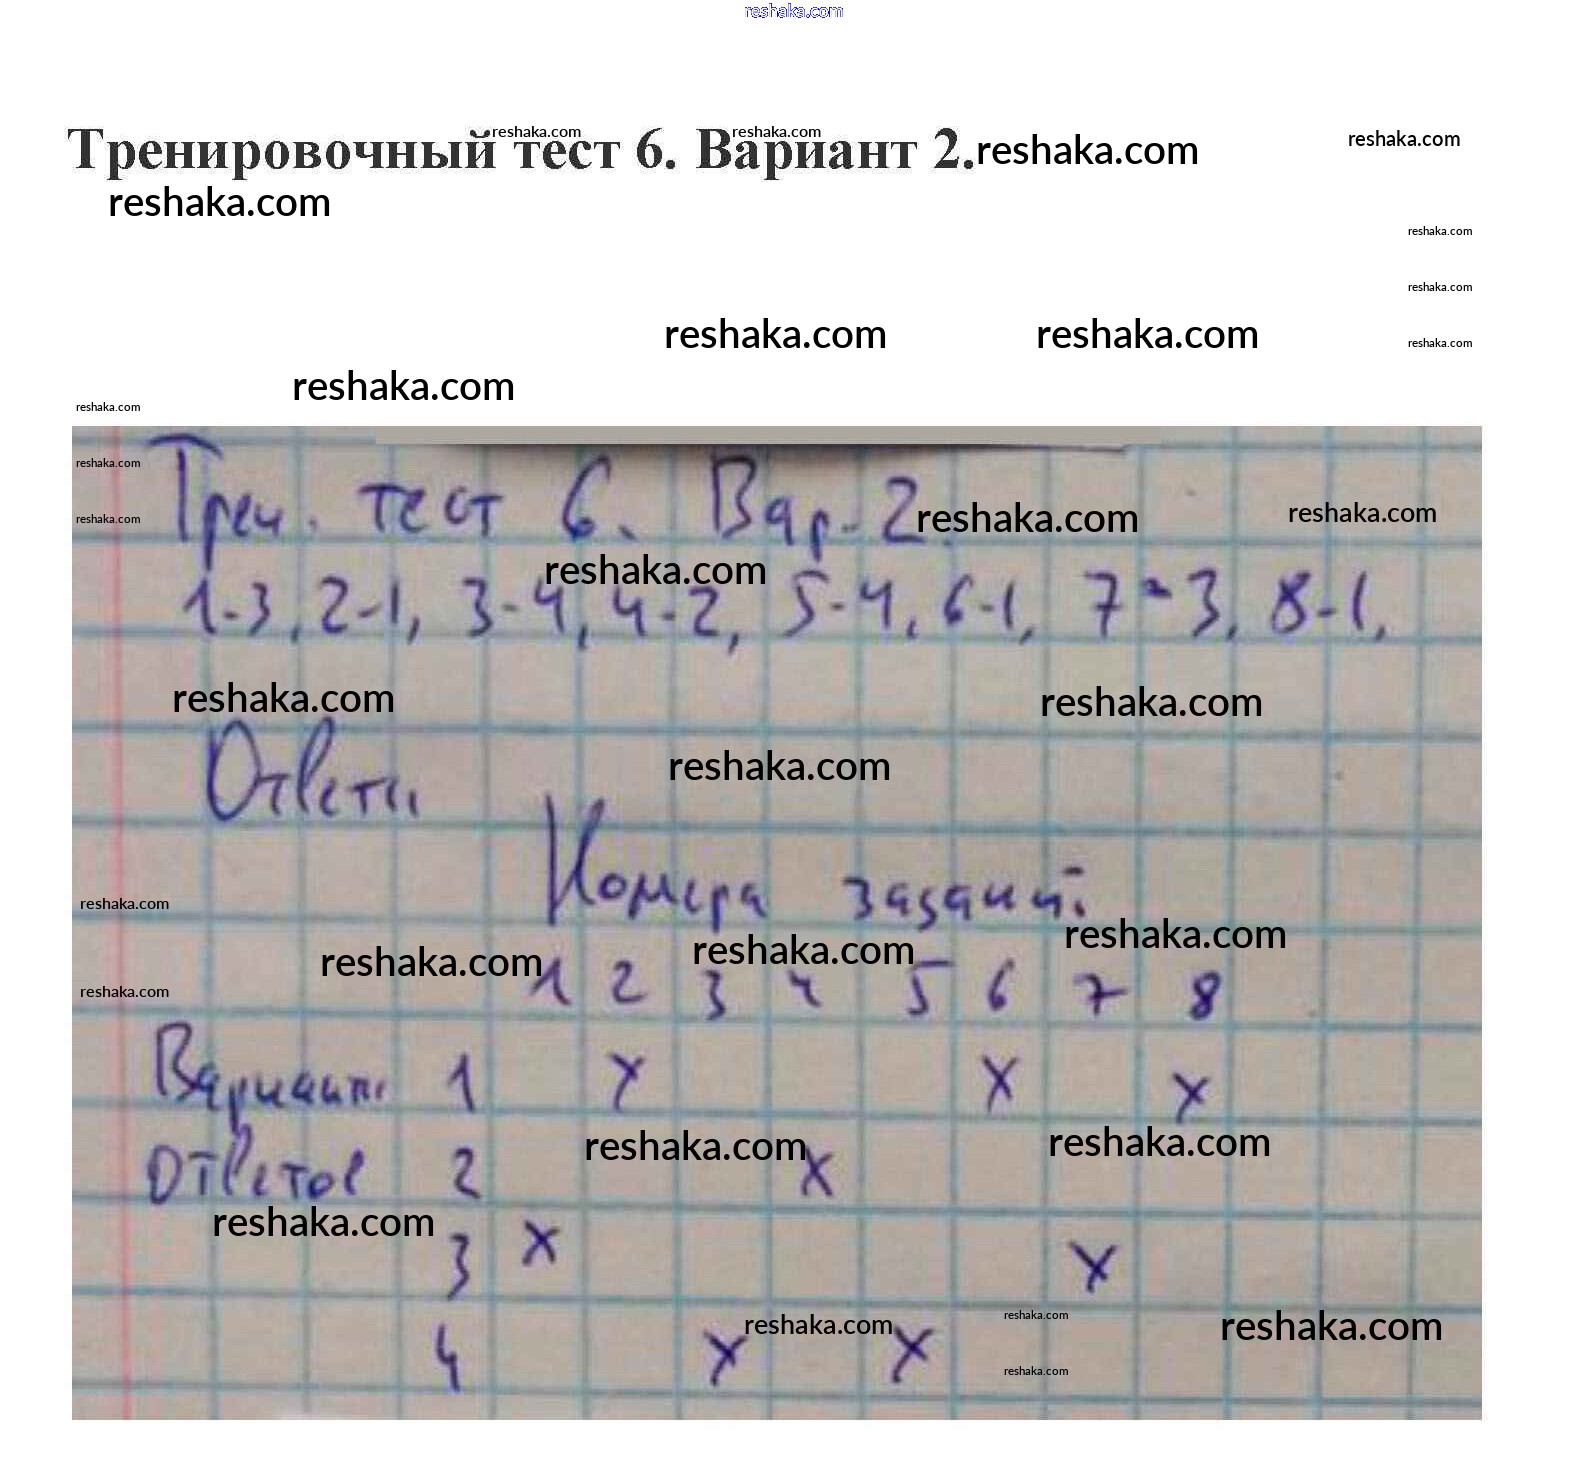 reshaka.com
Тренировочный тест 6. Вариант 2.
reshaka.com reshaka.com reshaka.com reshaka.com
reshaka.com
reshaka.com
reshaka.com
reshaka.com reshaka.com reshaka.com
reshaka.com
reshaka.com
reshaka.com
Трен. тест 6. Вар-2.
reshaka.com reshaka.com reshaka.com
reshaka.com
1-3, 2-1, 3-4, 4-2, 5-4, 6-1, 7-3, 8-1,
reshaka.com reshaka.com
reshaka.com
Ответы
Номера заданий:
reshaka.com
reshaka.com reshaka.com reshaka.com
reshaka.com
1 2 3 4 5 6 7 8
Варианты 1 x x x
reshaka.com reshaka.com
ответов 2 x
reshaka.com
3 x x
reshaka.com reshaka.com reshaka.com
4 x x
reshaka.com